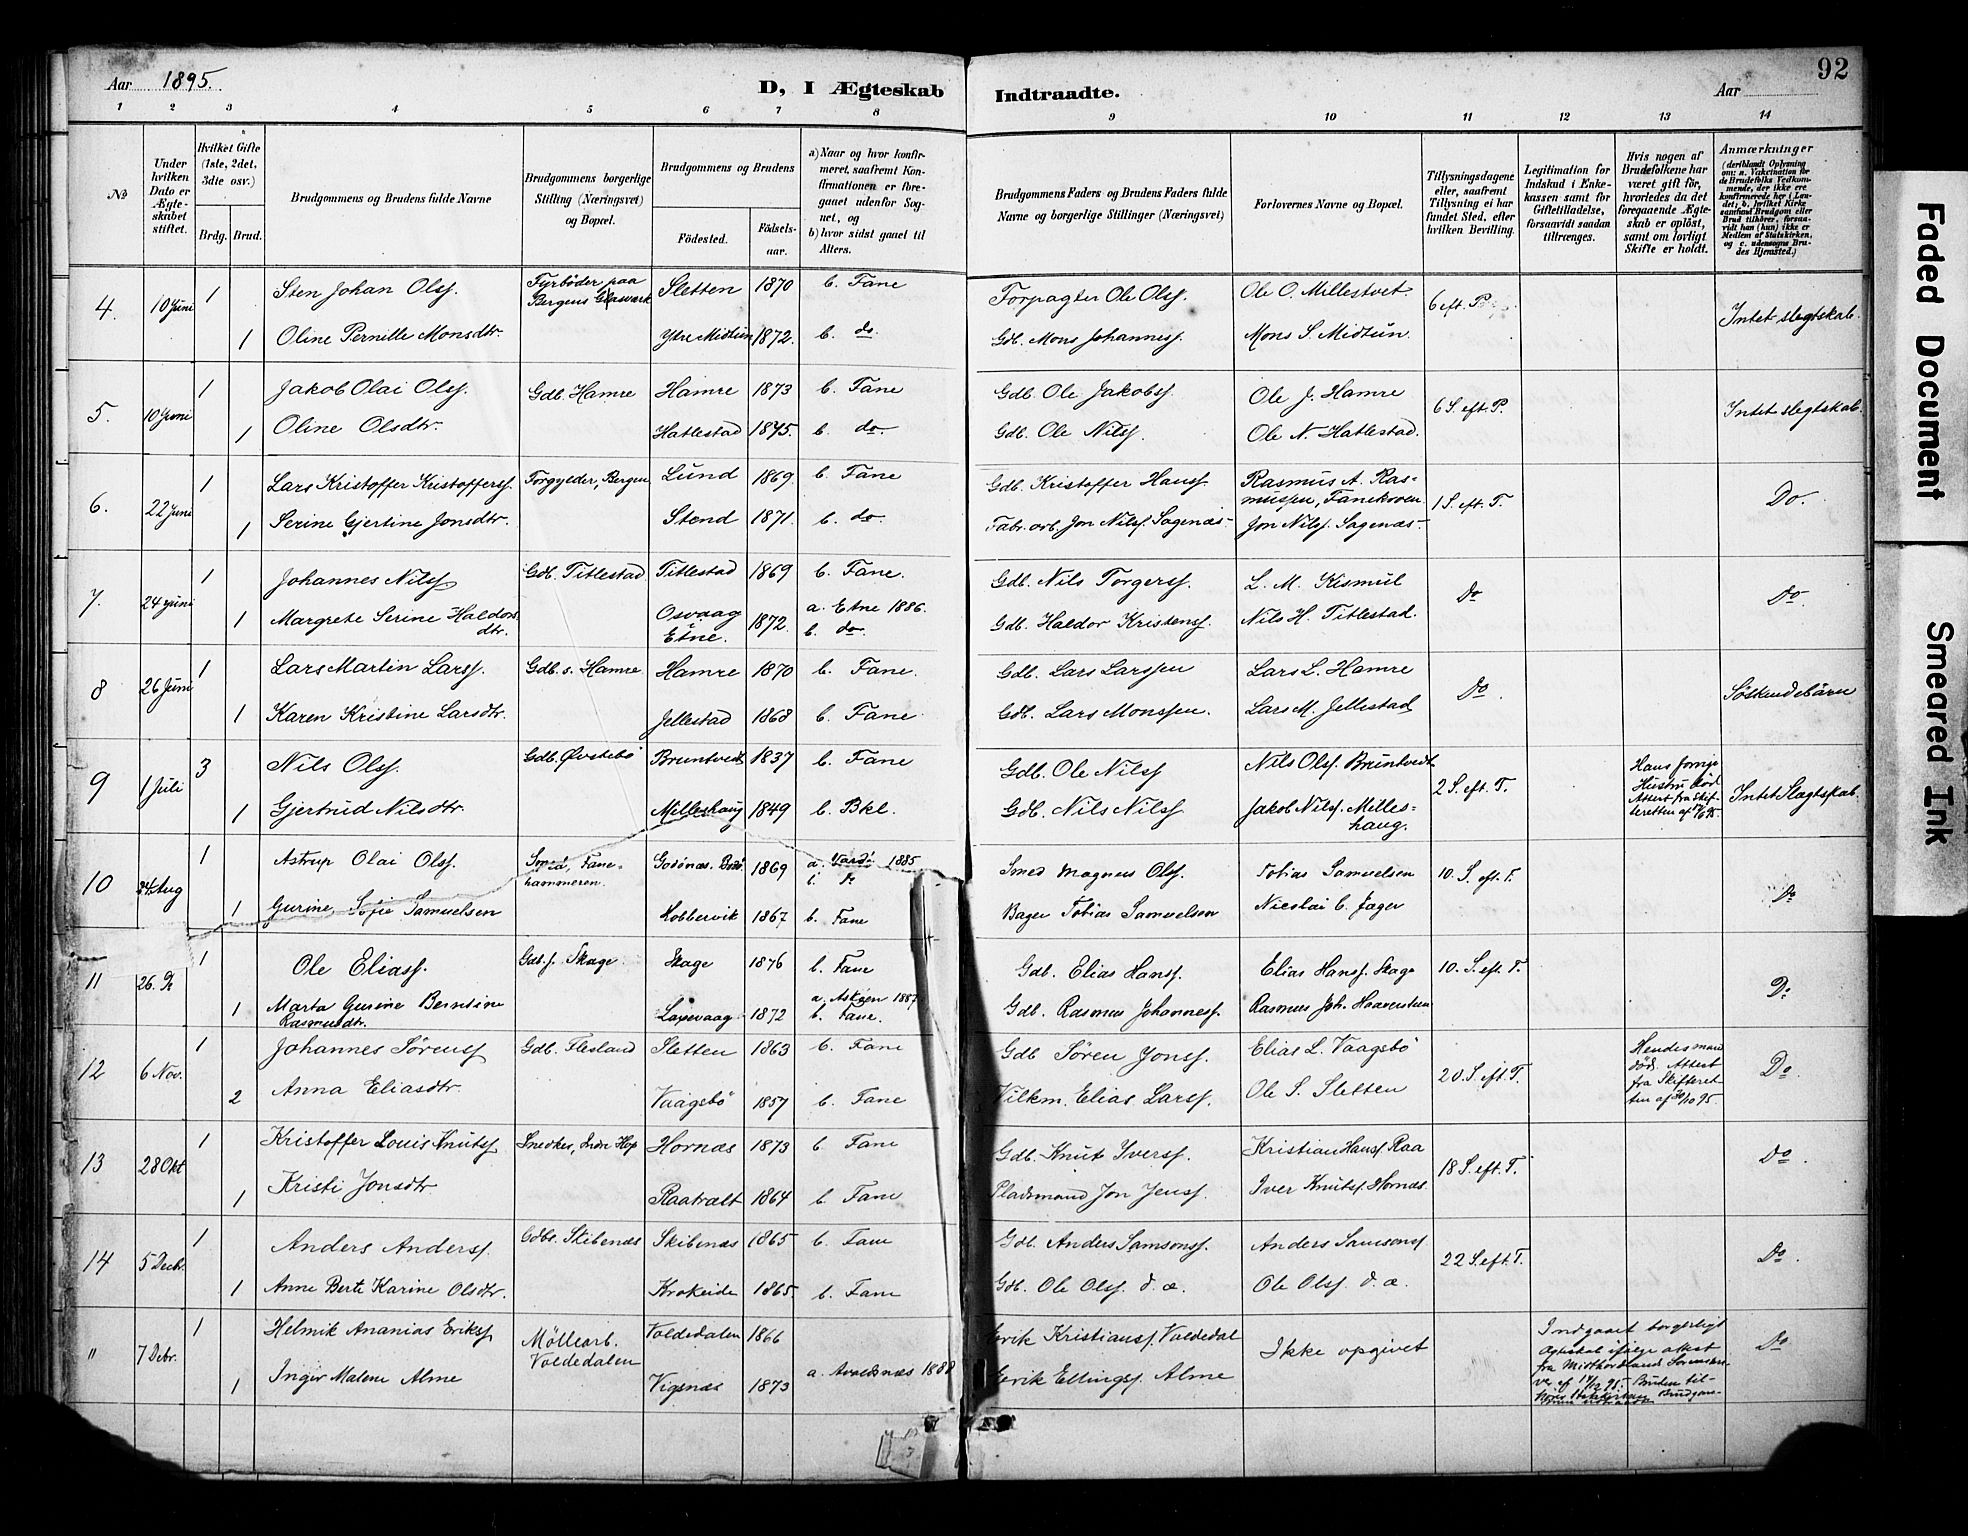 Aar 1895.
D, I Ægteskab
Indtraadte.
Aar
92
1 2 3 4 5 6 7 8 9 10 11 12 13 14
№
Under hvilken Dato er Ægteskabet stiftet.
Hvilket Gifte (1ste, 2det, 3die osv.)
Brdg. Brud.
Brudgommens og Brudens fulde Navne
Brudgommens borgerlige Stilling (Næringsvei) og Bopæl.
Brudgommens og Brudens
Födested. Födselsaar.
a) Naar og hvor konfirmeret, saafremt Konfirmationen er foregaaet udenfor Sognet, og
b) hvor sidst gaaet til Alters.
Brudgommens Faders og Brudens Faders fulde Navne og borgerlige Stillinger (Næringsvei)
Forlovernes Navne og Bopæl.
Tillysningsdagene eller, saafremt Tillysning ei har fundet Sted, efter hvilken Bevilling.
Legitimation for Indskud i Enkekassen samt for Giftetilladelse, forsaavidt saadan tiltrænges.
Hvis nogen af Brudefolkene har været gift för, hvorledes da det foregaaende Ægteskab er oplöst, samt om lovligt Skifte er holdt.
Anmærkninger (deriblandt Oplysning om: a. Vakcination for de Brudefolks Vedkommende, der ikke ere konfirmerede her i Landet; b. hvilket Kirkesamfund Brudgom eller Brud tilhörer, forsaavidt han (hun) ikke er Medlem af Statskirken, og c. udensogns Brudes Hjemsted.)
4. 10 Juni 1 Sten Johan Olss. Fyrböder paa Bergens Glasværk Sletten 1870 b. Fane Forpagter Ole Olss. Ole O. Millestvet. 6 eft. P. Intet slegtskab.
1 Oline Pernille Monsdtr. Ytre Midtun 1872. b. do. Gdb. Mons Johanness. Mons S. Midtun.
5. 10 Juni 1 Jakob Olai Olss. Gdb. Hamre Hamre 1873 b. Fane Gdb. Ole Jakobss. Ole J. Hamre 6 S. eft. P. Intet slegtskab.
1 Oline Olsdtr. Hatlestad 1875. b. do. Gdb. Ole Nilss. Ole N. Hatlestad.
6. 22 Juni 1 Lars Kristoffer Kristofferss. Forgylder, Bergen Lund 1869. b. Fane Gdb. Kristoffer Hanss. Rasmus A. Rasmussen, Fanekroen 1 S. eft. T. Do.
1 Serine Gjertine Jonsdtr. Stend 1871. b. do. Fabr. arb. Jon Nilss. Sagenæs Jon Nilss. Sagenæs
7. 24 Juni 1 Johannes Nilss. Gdb. Titlestad Titlestad 1869 b. Fane. Gdb. Nils Torgerss. L. M. Kismul Do Do.
1 Margrete Serine Haldorsdtr. Osvaag Etne. 1872. a. Etne 1886. b. do. Gdb. Haldor Kristenss. Nils H. Titlestad.
8 26 Juni 1 Lars Martin Larss. Gdb. s. Hamre Hamre 1870 b. Fane. Gdb. Lars Larssen Lars L. Hamre Do. Söskendebörn
1 Karen Kristine Larsdtr. Jellestad 1868 b. Fane. Gdb. Lars Monssen. Lars M. Jellestad
9 1 Juli 3 Nils Olss. Gdb. Övstebö Bruntvedt 1837 b. Fane Gdb. Ole Nilss. Nils Olss. Bruntvedt 2 S. eft. T. Hans forrige Hustru död Attest fra Skifteretten af Intet Slægtskab.
1 Gjertrud Nilsdtr. Milleshaug 1849 b. Bkl. Gdb. Nils Nilss. Jakob Nilss. Milleshaug.
10 24 Aug 1 Astrup Olai Olss. Smed, Fanehammeren. Godönæs. Bodö 1869 a. Vardö 1885 b. do Smed Magnus Olss. Tobias Samuelsen 10. S. eft. T. Do
1 Gurine Sofie Samuelsen Kobbervik 1867 b. Fane Bager Tobias Samuelsen Nicolai C. Jæger
11 26. 1 Ole Eliass. Gdb. s. Skage. Skage 1876 b. Fane Gdb. Elias Hanss. Elias Hanss. Skage 10. S. eft. T. Do
1 Marta Gurine Berntine Rasmusdtr. Laxevaag 1872 a. Askøen 1887 b. Fane. Gdb. Rasmus Johanness. Rasmus Joh.
12 6 Nov. 1 Johannes Sörenss. Gdb. Flesland Sletten 1863 b. Fane Gdb Sören Jonss. Elias L. Vaagsbö 20. S. eft. T. Hendes mand död. Attest fra Skifteretten af 30/10 95. Do
2 Anna Eliasdtr. Vaagsbö 1857 b. Fane Vilkm. Elias Larss. Ole S. Sletten
13 28 Okt 1 Kristoffer Louis Knutss. Snedker, Indre Hop Hornæs 1873 b Fane Gdb. Knut Iverss. Kristian Hanss. Raa 18 S. eft. T. Do.
1 Kristi Jonsdtr. Raatræet 1864 b. Fane Pladsmand Jon Jenss. Iver Knutss. Hornæs
14 5 Decbr. 1 Anders Anderss. Gdbr. Skibenæs Skibenæs 1865 b. Fane Gdb. Anders Samsonss. Anders Samsonss. 22 S. eft. T. Do.
1 Anne Berte Karine Olsdtr. Krokeide 1865. b. Fane Gdb. Ole Olss. d. æ. Ole Olss. d. æ.
" 7 Debr. 1 Helmik Ananias Erikss. Möllearb. Voldedalen Voldedalen 1866 Erik Kristianss. Voldedal Ikke opgivet Indgaaet borgerligt Ægteskab ifölge attest fra Midthordlands Sorenskriver af 95. Bruden tilhörer Statskirken Brudgommen Do
1 Inger Malene Alme Vigsnæs 1873 a. Avaldsnæs 1888 Erik Ellingss. Alme
Faded Document
Smeared Ink